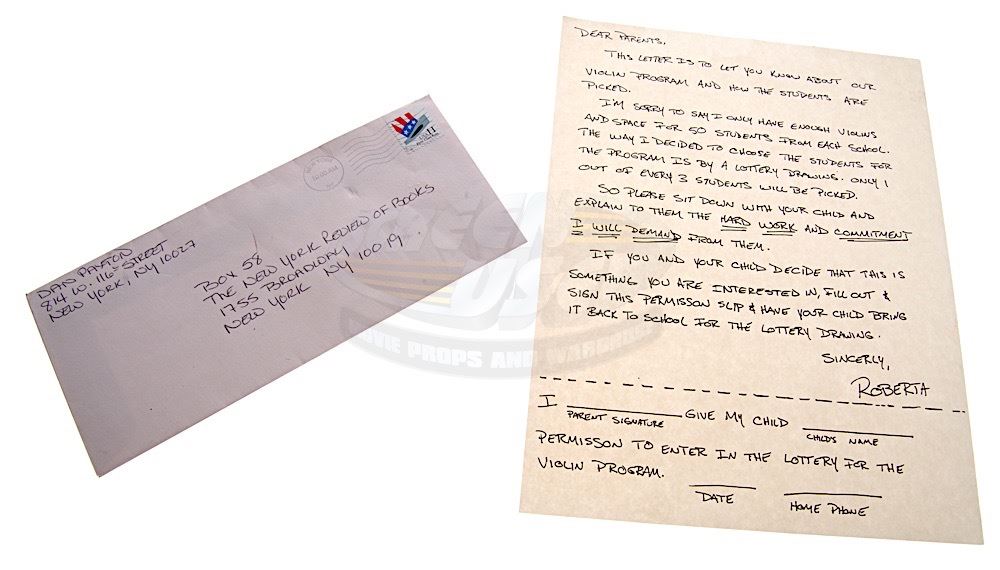 DAN PAXTON
814 W. 116th STREET
NEW YORK, NY 10027
BOX 58
THE NEW YORK REVIEW OF BOOKS
1755 BROADWAY
NEW YORK NY 10019
DEAR PARENTS,
THIS LETTER IS TO LET YOU KNOW ABOUT OUR
VIOLIN PROGRAM AND HOW THE STUDENTS ARE
PICKED.
I'M SORRY TO SAY I ONLY HAVE ENOUGH VIOLINS
AND SPACE FOR 50 STUDENTS FROM EACH SCHOOL.
THE WAY I DECIDED TO CHOOSE THE STUDENTS FOR
THE PROGRAM IS BY A LOTTERY DRAWING. ONLY 1
OUT OF EVERY 3 STUDENTS WILL BE PICKED.
SO PLEASE SIT DOWN WITH YOUR CHILD AND
EXPLAIN TO THEM THE HARD WORK AND COMMITMENT
I WILL DEMAND FROM THEM.
IF YOU AND YOUR CHILD DECIDE THAT THIS IS
SOMETHING YOU ARE INTERESTED IN, FILL OUT &
SIGN THIS PERMISSON SLIP & HAVE YOUR CHILD BRING
IT BACK TO SCHOOL FOR THE LOTTERY DRAWING.
SINCERLY,
ROBERTA
I ____________ GIVE MY CHILD ____________
PARENT SIGNATURE CHILDS NAME
PERMISSON TO ENTER IN THE LOTTERY FOR THE
VIOLIN PROGRAM.
DATE HOME PHONE
SCREEN
USED
MOVIE PROPS AND WARDROBE